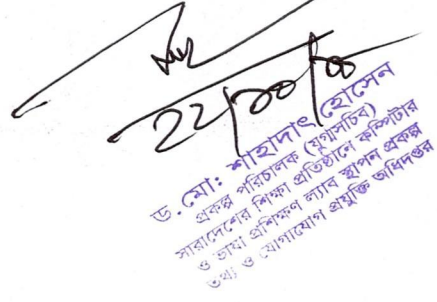 ২২/১০/
ড. মোঃ শাহাদাৎ হোসেন
প্রকল্প পরিচালক (যুগ্মসচিব)
সারাদেশের শিক্ষা প্রতিষ্ঠানে কম্পিউটার
ও ভাষা প্রশিক্ষণ ল্যাব স্থাপন প্রকল্প
তথ্য ও যোগাযোগ প্রযুক্তি অধিদপ্তর